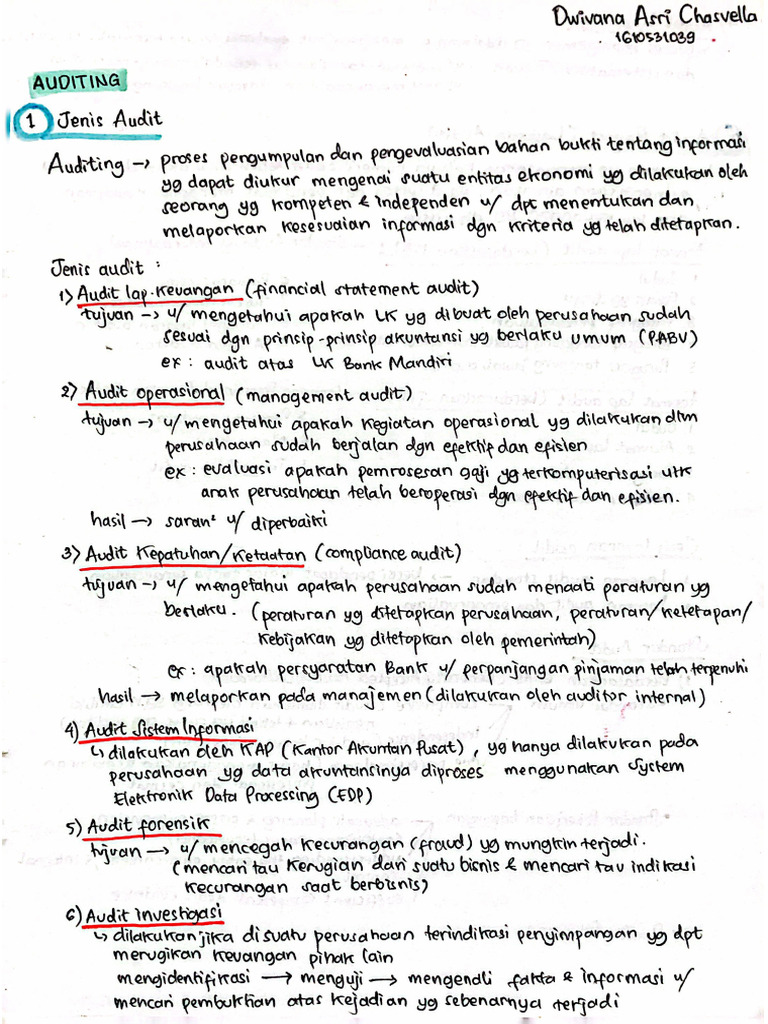 Dwivana Asri Chasvella
1610531039
AUDITING
1 Jenis Audit
Auditing → proses pengumpulan dan pengevaluasian bahan bukti tentang informasi
yg dapat diukur mengenai suatu entitas ekonomi yg dilakukan oleh
seorang yg kompeten & independen u/ dpt menentukan dan
melaporkan kesesuaian informasi dgn kriteria yg telah ditetapkan.
Jenis audit :
1) Audit lap. keuangan (financial statement audit)
tujuan → u/ mengetahui apakah LK yg dibuat oleh perusahaan sudah
sesuai dgn prinsip-prinsip akuntansi yg berlaku umum (PABU)
ex : audit atas LK Bank Mandiri
2) Audit operasional (management audit)
tujuan → u/ mengetahui apakah kegiatan operasional yg dilakukan dlm
perusahaan sudah berjalan dgn efektif dan efisien
ex : evaluasi apakah pemrosesan gaji yg terkomputerisasi utk
anak perusahaan telah beroperasi dgn efektif dan efisien.
hasil → saran² u/ diperbaiki
3) Audit Kepatuhan/Ketaatan (compliance audit)
tujuan → u/ mengetahui apakah perusahaan sudah menaati peraturan yg
berlaku. (peraturan yg ditetapkan perusahaan, peraturan/ketetapan/
kebijakan yg ditetapkan oleh pemerintah)
ex : apakah persyaratan Bank u/ perpanjangan pinjaman telah terpenuhi
hasil → melaporkan pada manajemen (dilakukan oleh auditor internal)
4) Audit Sistem Informasi
↳ dilakukan oleh KAP (Kantor Akuntan Pusat), yg hanya dilakukan pada
perusahaan yg data akuntansinya diproses menggunakan System
Elektronik Data Processing (EDP)
5) Audit forensik
tujuan → u/ mencegah kecurangan (fraud) yg mungkin terjadi.
(mencari tau kerugian dari suatu bisnis & mencari tau indikasi
kecurangan saat berbisnis)
6) Audit investigasi
↳ dilakukan jika disuatu perusahaan terindikasi penyimpangan yg dpt
merugikan keuangan pihak lain
mengidentifikasi → menguji → mengendli fakta & informasi u/
mencari pembuktian atas kejadian yg sebenarnya terjadi